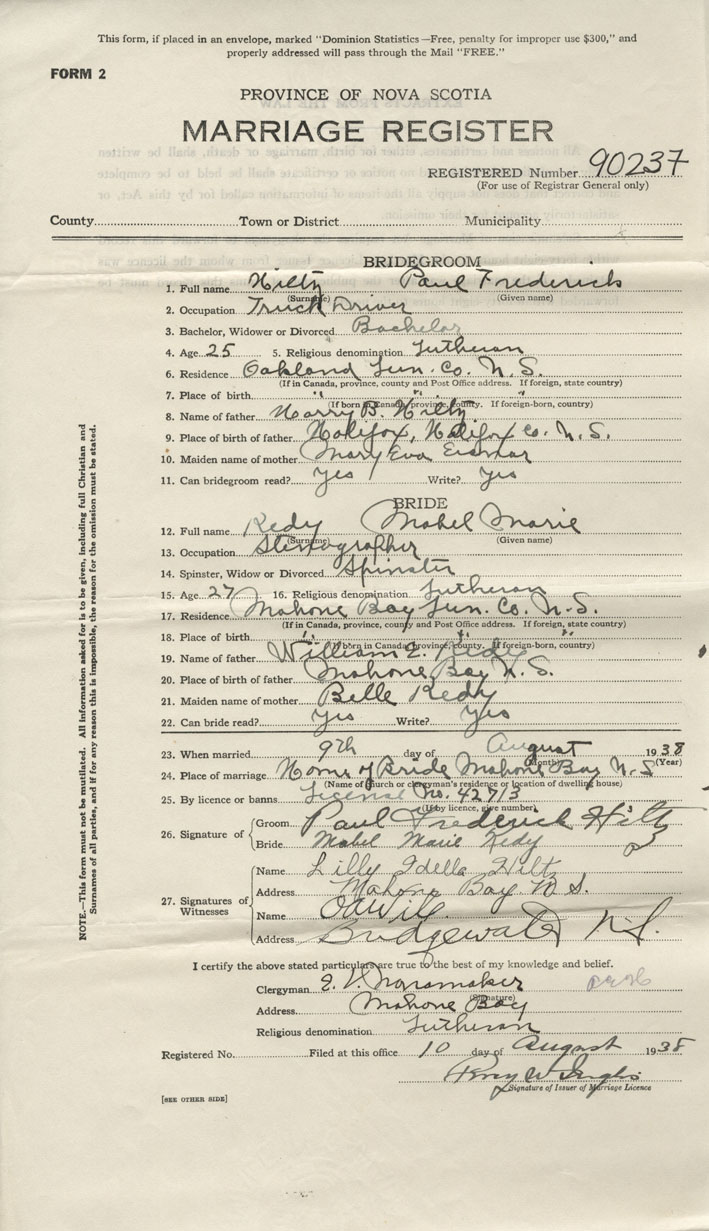 This form, if placed in an envelope, marked "Dominion Statistics—Free, penalty for improper use $300," and
properly addressed will pass through the Mail "FREE."
FORM 2
PROVINCE OF NOVA SCOTIA
MARRIAGE REGISTER
REGISTERED Number 90237
(For use of Registrar General only)
County Town or District Municipality
BRIDEGROOM
1. Full name Hiltz Paul Frederick
(Surname) (Given name)
2. Occupation Truck Driver
3. Bachelor, Widower or Divorced Bachelor
4. Age 25 5. Religious denomination Lutheran
6. Residence Oakland Lun. Co. N. S.
(If in Canada, province, county and Post Office address. If foreign, state country)
7. Place of birth " " "
(If born in Canada, province, county. If foreign-born, country)
8. Name of father Harry B. Hiltz
9. Place of birth of father Halifax, Halifax Co. N. S.
10. Maiden name of mother Mary Eva
11. Can bridegroom read? Yes Write? Yes
BRIDE
12. Full name Kedy Mabel Marie
(Surname) (Given name)
13. Occupation Stenographer
14. Spinster, Widow or Divorced Spinster
15. Age 27 16. Religious denomination Lutheran
17. Residence Mahone Bay Lun. Co. N.S.
(If in Canada, province, county and Post Office address. If foreign, state country)
18. Place of birth " " "
(If born in Canada, province, county. If foreign-born, country)
19. Name of father William E. Kedy
20. Place of birth of father Mahone Bay N. S.
21. Maiden name of mother Belle Kedy
22. Can bride read? Yes Write? Yes
23. When married 9th day of August 1938
(Month) (Year)
24. Place of marriage Home of Bride Mahone Bay N.S
(Name of church or clergyman's residence or location of dwelling house)
25. By licence or banns License No. 42713
(If by licence, give number)
26. Signature of Groom Paul Frederick Hiltz
Bride Mabel Marie Kedy
27. Signatures of Witnesses Name Lilly Idella Hiltz
Address Mahone Bay N S.
Name
Address Bridgewater N.S.
I certify the above stated particulars are true to the best of my knowledge and belief.
Clergyman E. V. Nonamaker
(Signature)
Address Mahone Bay
Religious denomination Lutheran
Registered No. Filed at this office 10 day of August 1938
Signature of Issuer of Marriage Licence
[SEE OTHER SIDE]
NOTE.—This form must not be mutilated. All information asked for is to be given, including full Christian and
Surnames of all parties, and if for any reason this is impossible, the reason for the omission must be stated.